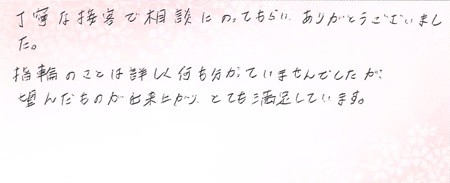 丁寧な接客で相談にのってもらい、ありがとうございまし
た。
指輪のことは詳しく何も分かっていませんでしたが、
望んだものが出来上がり、とても満足しています。